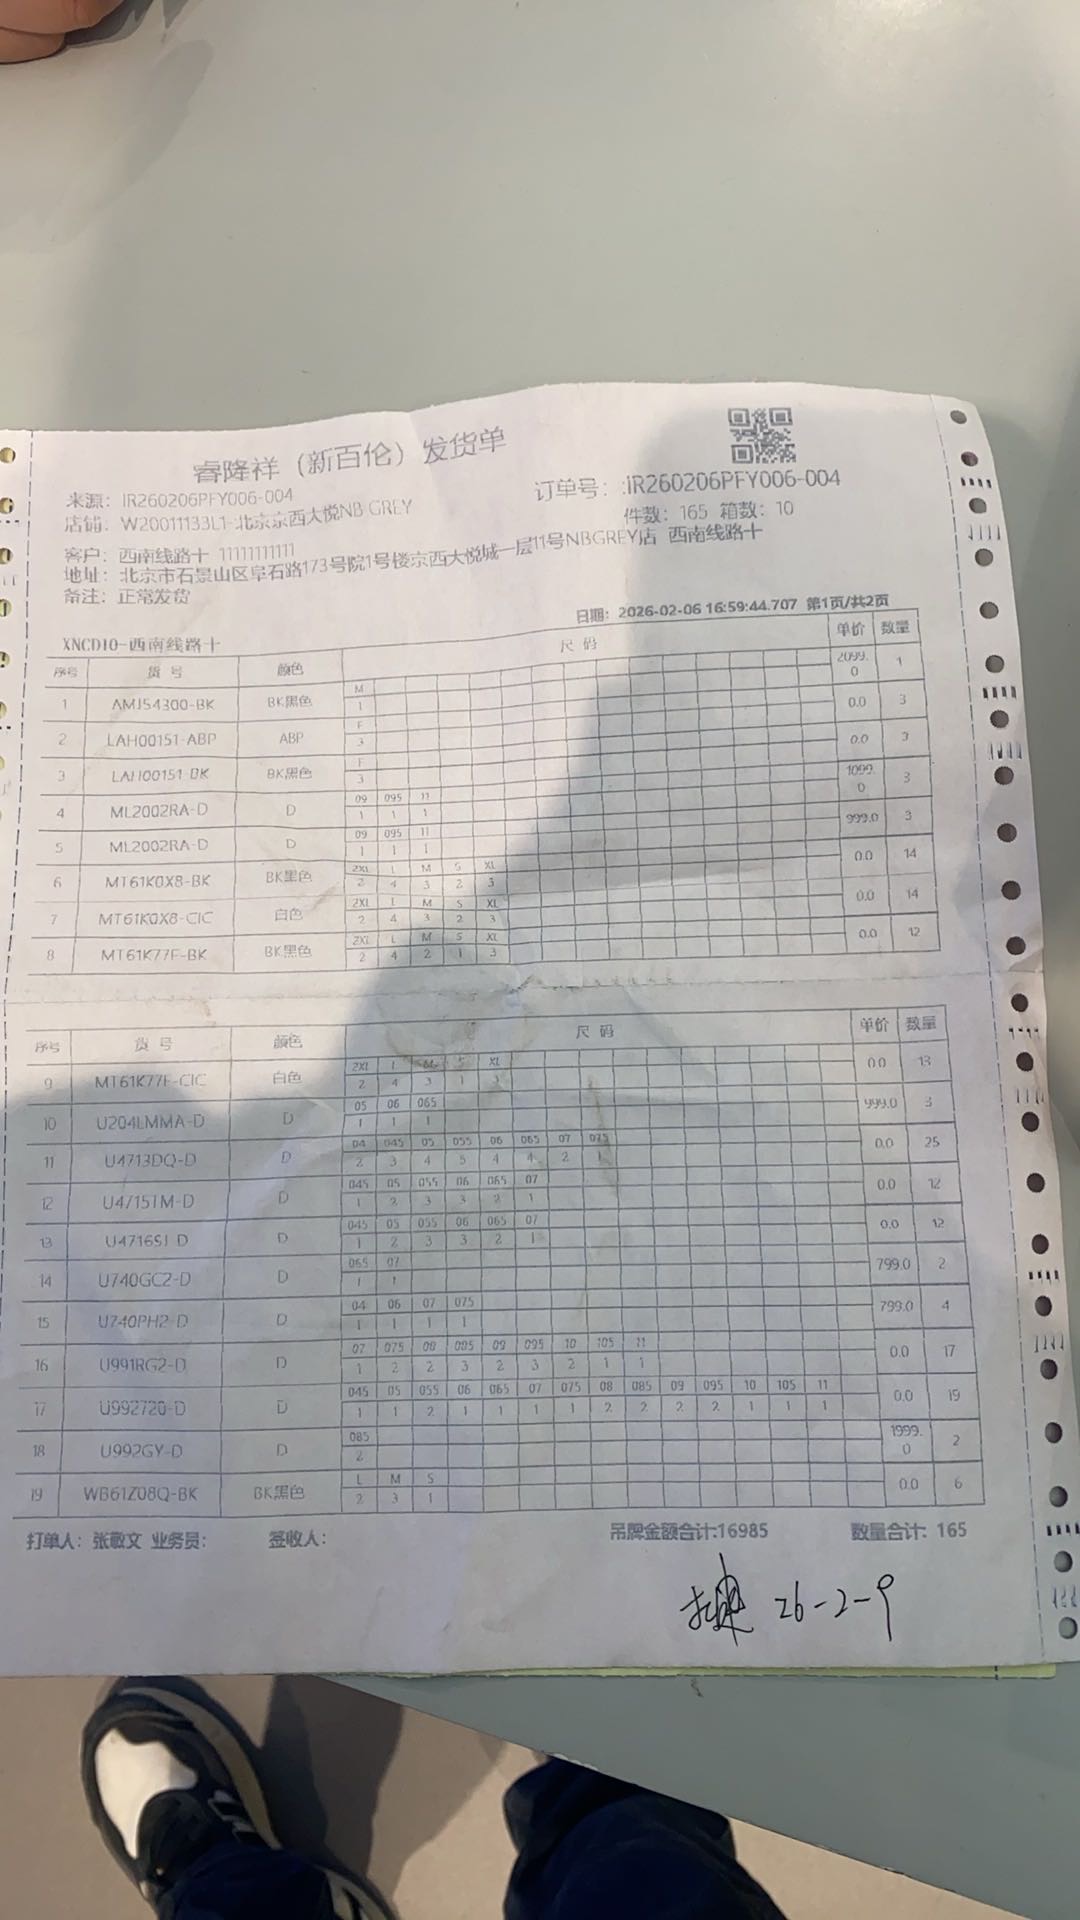 睿隆祥（新百伦）发货单
来源：IR260206PFY006-004 订单号：IR260206PFY006-004
店铺：W20011133L1-北京京西大悦NB GREY 件数：165 箱数：10
客户：西南线路十 11111111111
地址：北京市石景山区阜石路173号院1号楼京西大悦城一层11号NBGREY店 西南线路十
备注：正常发货
日期：2026-02-06 16:59:44.707 第1页/共2页
XNCD10-西南线路十
序号 货号 颜色 尺码 单价 数量
1 AMJ54300-BK BK黑色 M 2099.0 1
1
2 LAH00151-ABP ABP F 0.0 3
3
3 LAH00151-BK BK黑色 F 0.0 3
3
4 ML2002RA-D D 09 095 11 1099.0 3
1 1 1
5 ML2002RA-D D 09 095 11 999.0 3
1 1 1
6 MT61K0X8-BK BK黑色 2XL L M S XL 0.0 14
2 4 3 2 3
7 MT61K0X8-CIC 白色 2XL L M S XL 0.0 14
2 4 3 2 3
8 MT61K77F-BK BK黑色 2XL L M S XL 0.0 12
2 4 2 1 3
序号 货号 颜色 尺码 单价 数量
9 MT61K77F-CIC 白色 2XL L M S XL 0.0 13
2 4 3 1 3
10 U204LMMA-D D 05 06 065 999.0 3
1 1 1
11 U4713DQ-D D 04 045 05 055 06 065 07 075 0.0 25
2 3 4 5 4 4 2 1
12 U4715TM-D D 045 05 055 06 065 07 0.0 12
1 2 3 3 2 1
13 D 045 05 055 06 065 07 0.0 12
1 2 3 3 2 1
14 U740GC2-D D 065 07 799.0 2
1 1
15 U740PH2-D D 04 06 07 075 799.0 4
1 1 1 1
16 U991RG2-D D 07 075 08 085 09 095 10 105 11 0.0 17
1 2 2 3 2 3 2 1 1
17 U992720-D D 045 05 055 06 065 07 075 08 085 09 095 10 105 11 0.0 19
1 1 2 1 1 1 1 2 2 2 2 1 1 1
18 U992GY-D D 085 1999.0 2
2
19 WB61Z08Q-BK BK黑色 L M S 0.0 6
2 3 1
打单人：张敏文 业务员： 签收人： 吊牌金额合计:16985 数量合计：165
26-2-9